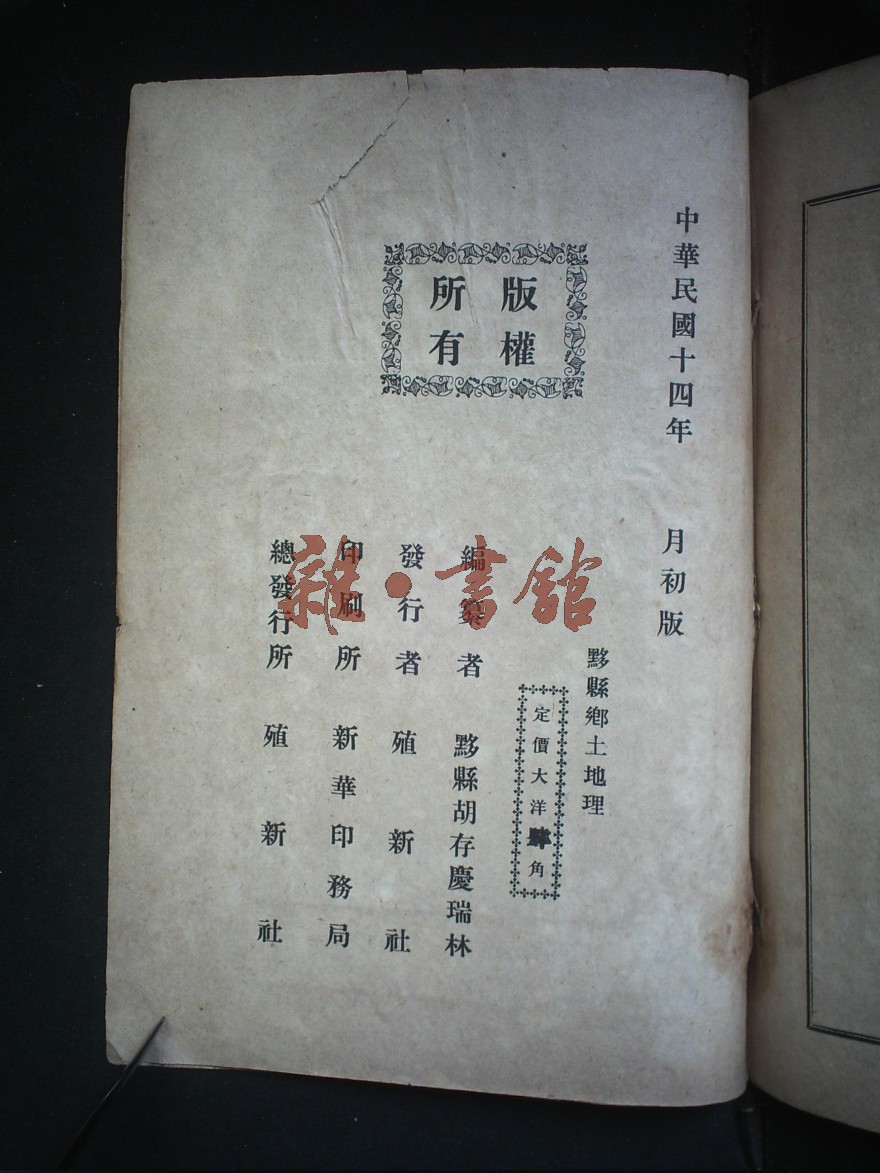 中華民國十四年 月初版
版權
所有
黟縣鄉土地理
定價大洋肆角
編纂者 黟縣胡存慶瑞林
發行者 殖新社
印刷所 新華印務局
總發行所 殖新社
雜·書館